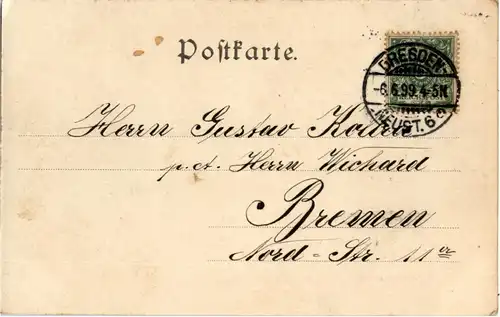 Postkarte.
DRESDEN
-6.6.99.4-5N.
NEUST. 6
Herrn Gustav
p. ct. Herrn Wichard
Bremen
Nord-Str. 11